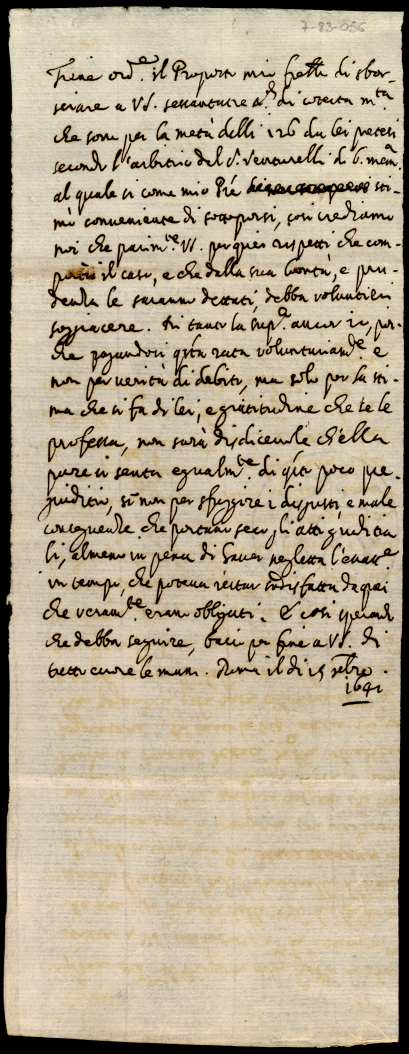 7-83-056
Tiene ord.e il Proposto mio frello di sbor-
sciare a VS. sessantatre di cotesta m.ta
che sono per la metà delli 126 da lei pretesi
secondo l'arbitrio del s.r Venturelli di b. mem.a
al quale si come mio Pre sti-
mò conveniente di sottoporsi, così crediamo
noi che parim.te VS. per quei rispetti che com-
il caso, e che dalla sua bontà, e pru-
denza le saranno dettati, debba volontieri
soggiacere. la sup.co ancor io, per-
che pagandosi q.sta rata volontariam.te e
non per verità di debito, ma solo per la sti-
ma che si fa di lei, e gratitudine che se le
professa, non sarà disdicevole ch'ella
pure si senta egualm.te di q.sto poco pre-
giuditio, se non per sfuggire i disgusti, e male
conseguenze che portano seco gli atti giuditia
li, almeno in pena di haver negletta l'esatt.e
in tempo, che poteva restar sodisfatta da quei
che veram.te erano obligati. E così sperando
che debba seguire, bacio per fine a VS. di
tutto cuore le mani. Roma il di 15 7bre
1691